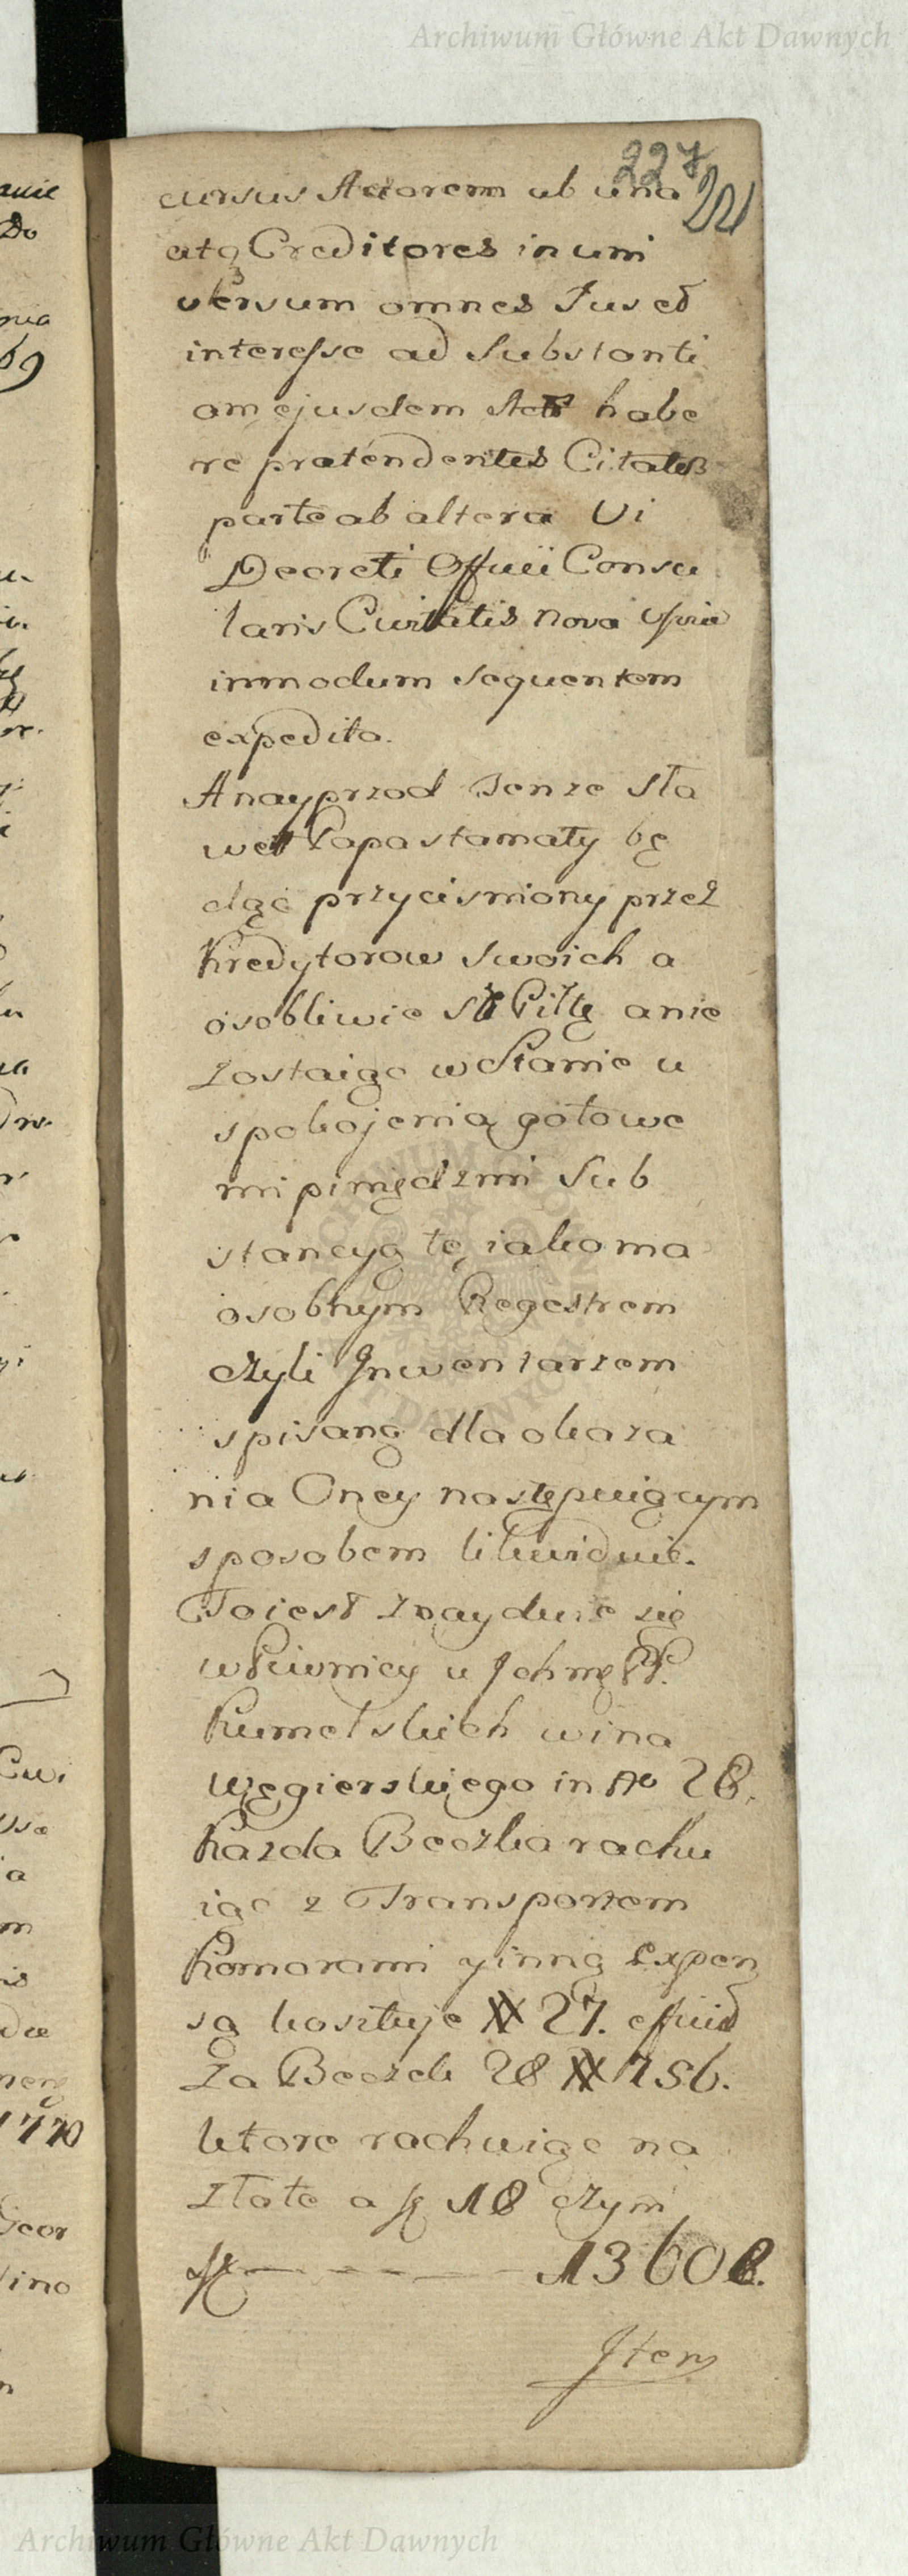 Archiwum Główne Akt Dawnych
227
221
cursus Actorem ab una
atq Creditores in uni
versum omnes Jus et
interesse ad Substanti
am ejusdem Act habe
re prætendentes Citatos
parte ab altera Vi
Decreti Officii Consu
laris Civitatis Nova
inmodum sequentem
expedito.
A nayprzod Tenze Sła
wet Papastamaty bę
dąc przycisniony przez
Kredytorow swoich a
osobliwie Sł Piltę anie
zostaiąc w Stanie u
spokojenia gotowe
mi piniędzmi Sub
stancyą tę, iako ma
osobnym Regestrem
czyli Inwentarzem
spisaną dla okaza
nia Oney następuiącym
sposobem likwiduie.
To iest znayduie się
w Piwnicy u Ichmę PP.
Kumelskich wina
Węgierskiego in No 28.
Kazda Beczka rachu
iąc z Transportem
Komorami y inną Expen
są kosztuje # 27. efficit
Za Beczek 28 # 756.
ktore rachuiąc na
Złote a fl 18 czyni
fl — — — — 13608.
Item
Archiwum Główne Akt Dawnych